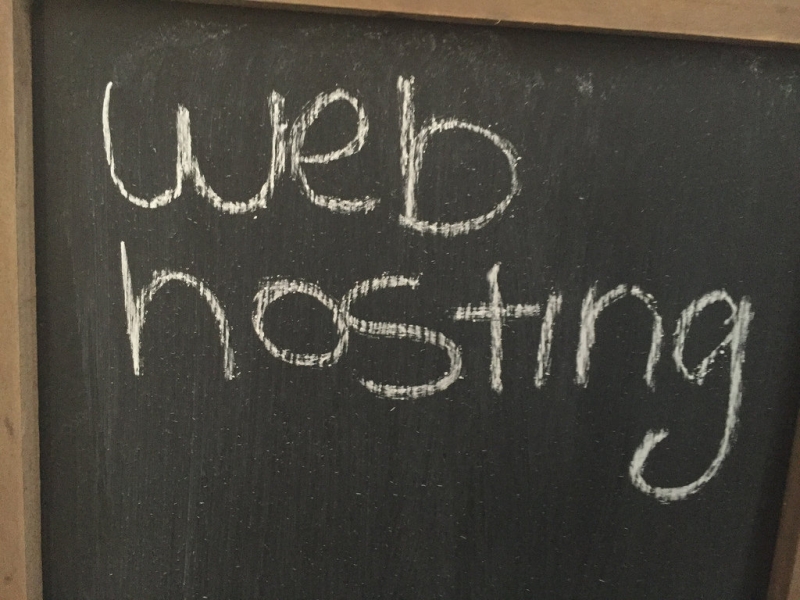 web
hosting